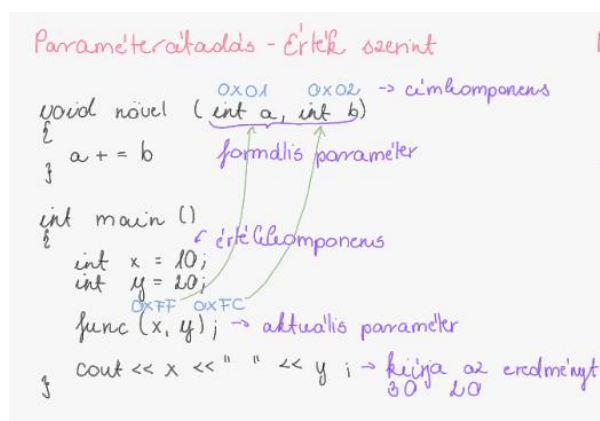 Paraméterátadás - Érték szerint
0x01 0x02 -> címkomponens
void növel (int a, int b)
{
a += b formális paraméter
}
int main ()
{ értékkomponens
int x = 10;
int y = 20;
0xFF 0xFC
func (x, y); -> aktuális paraméter
cout << x << " " << y ; -> kiírja az eredményt
} 30 20